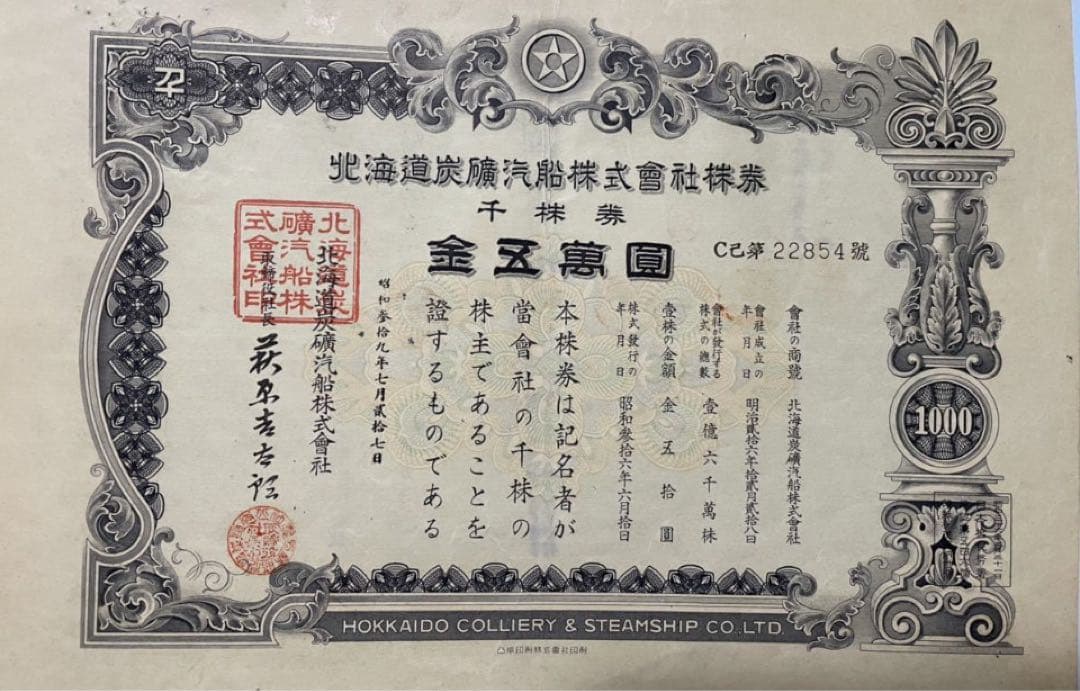 北海道炭礦汽船株式會社株券
千株券
金五萬圓
C己第22854號
會社の商號 北海道炭礦汽船株式會社
會社成立の年月日 明治貳拾六年拾貳月貳拾八日
會社が發行する株式の總數 壹億六千萬株
壹株の金額 金五拾圓
株式發行の年月日 昭和參拾六年六月拾日
本株券は記名者が
當會社の千株の
株主であることを
證するものである
昭和參拾九年七月貳拾七日
北海道炭礦汽船株式會社
取締役社長 萩原吉太郎
北海道炭
礦汽船株
式會社印
1000
HOKKAIDO COLLIERY & STEAMSHIP CO.,LTD.
凸版印刷株式會社印刷